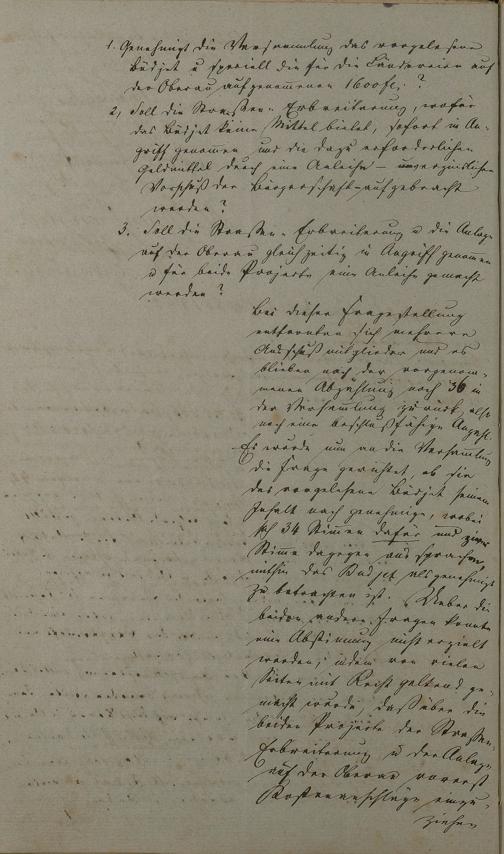 1. Genehmigt die Versammlung das vorgelesene
Büdjet u speciell die für die Ländereien auf
der Oberau aufgenommenen 1600 fl. ?
2, Soll die Strassen-Erbreiterung, wofür
das Büdjet keine Mittel bietet, sofort in An-
griff genomen und die dazu erforderlichen
Geldmittel durch eine Anleihe – unverzinslichen
Vorschuß der Bürgerschaft – aufgebracht
werden ?
3. Soll die Strassen-Erbreiterung u die Anlage
auf der Oberau gleichzeitig in Angriff genomen
u für beide Projecte eine Anleihe gemacht
werden ?
Bei dieser Fragestellung
entfernten sich mehrere
Ausschußmitglieder und es
blieben nach der vorgenom-
menen Abzählung noch 36 in
der Versammlung zurück, also
noch eine beschlußfähige Anzahl.
Es wurde nun an die Versamlung
die Frage gerichtet, ob sie
das vorgelesene Büdjet seinem
Inhalt nach genehmige, wobei
sich 34 Stimen dafür und zwei
Stime dagegen aussprachen,
mithin das Budjet als genehmigt
zu betrachten ist. Ueber die
beiden andern Fragen konnte
eine Abstimung nicht erzielt
werden, indem von vielen
Seiten mit Recht geltend ge-
macht wurde, daß über die
beiden Projecte der Strassen-
Erbreiterung u der Anlage
auf der Oberau vorerst
Kostenanschläge einzu-
ziehen